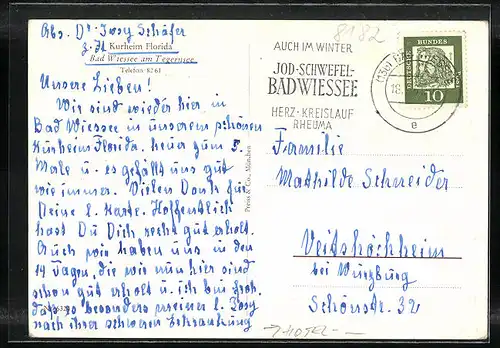 Abs. Dr. Josy Schäfer
z. Zt Kurheim Florida
Bad Wiessee am Tegernsee
Telefon 8261
Unsere Lieben!
Wir sind wieder hier in
Bad Wiessee in unserem schönen
Kurheim Florida. heuer zum 5.
Male u. es gefällt uns gut
wie immer. Vielen Dank für
Deine l. Karte. Hoffentlich
hast Du Dich recht gut erholt.
Auch wir haben uns in den
14 Tagen, die wir nun hier sind
schon gut erholt u. ich bin froh,
daß es besonders meiner l. Josy
nach ihrer schweren Erkrankung
Preiss & Co., München
8182
AUCH IM WINTER
JOD-SCHWEFEL-
BAD WIESSEE
HERZ·KREISLAUF
RHEUMA
18.
e
DEUTSCHE
BUNDES
POST
10
Familie
Mathilde Schneider
Veitshöchheim
bei Würzburg
Schönstr. 32
→ HOTEL -